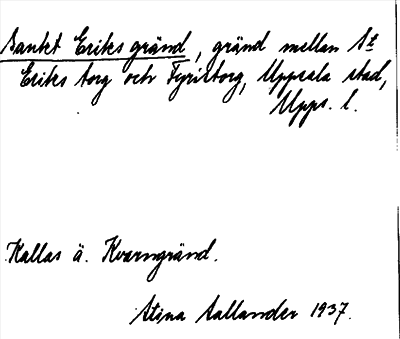 Sankt Eriks gränd, gränd mellan St
Eriks torg och Fyristorg, Uppsala stad,
Upps. l.
Kallas ä. Kvarngränd.
Stina Sallander 1937.